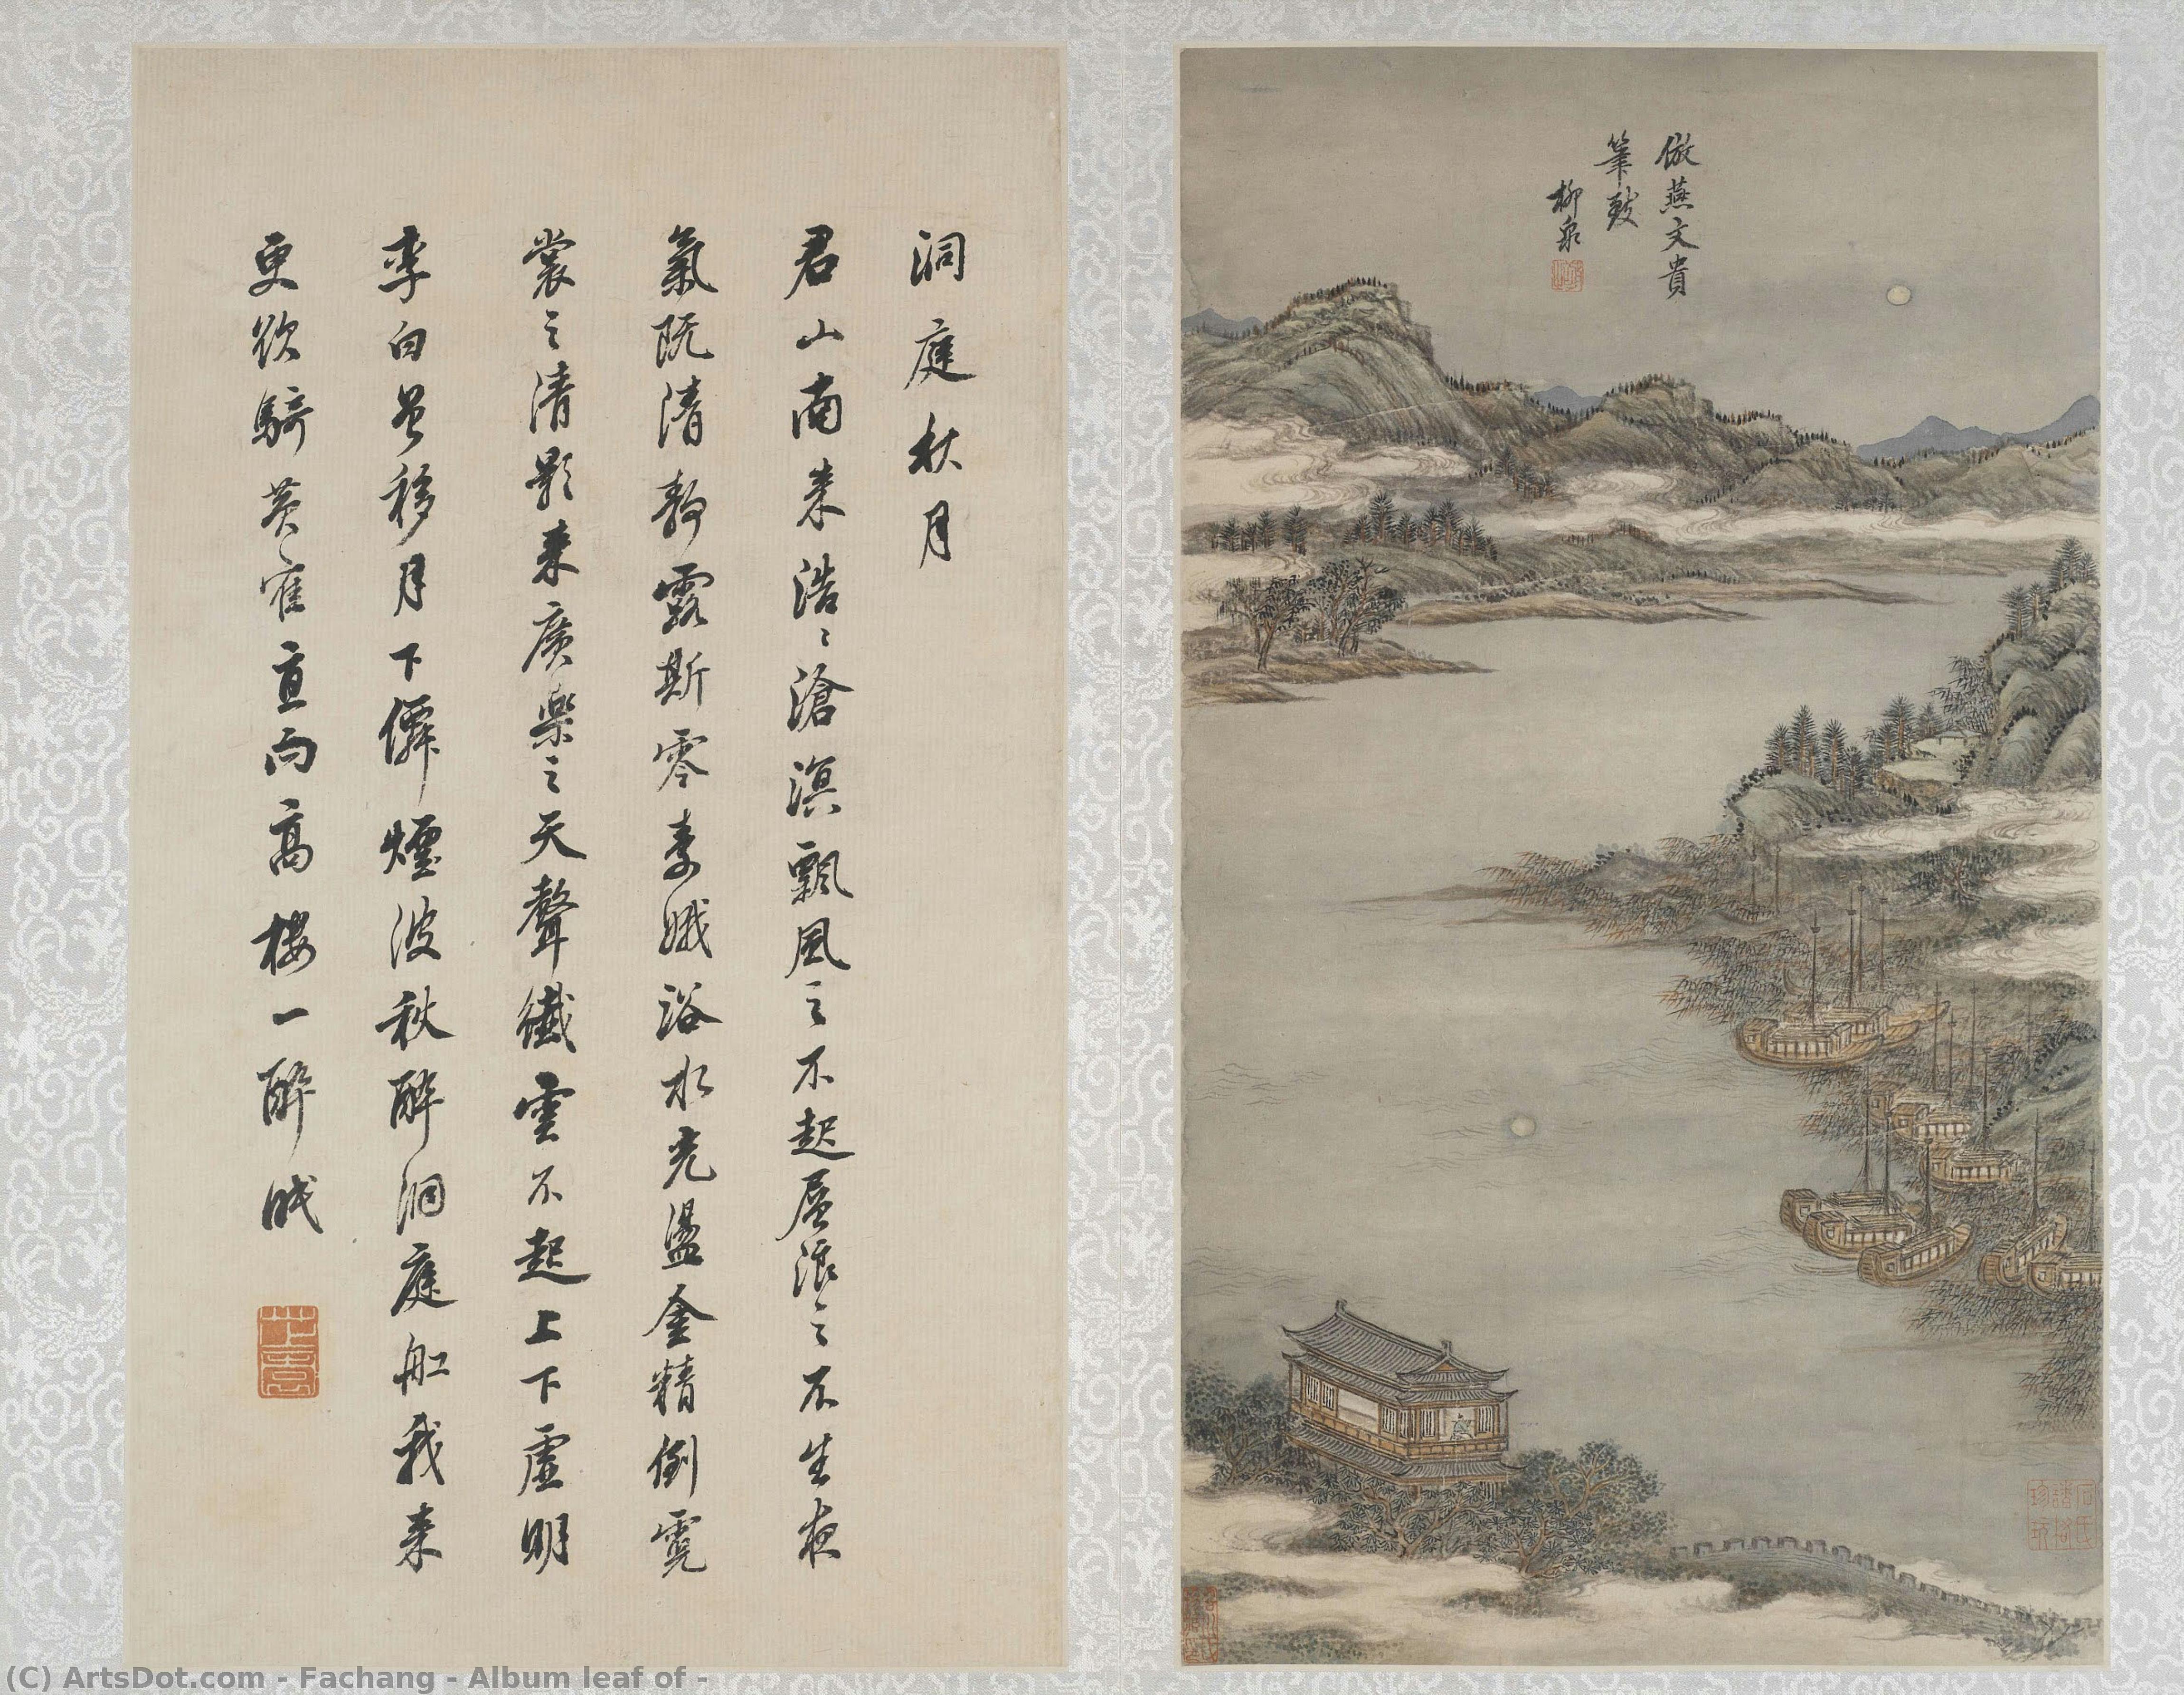 倣燕文貴
筆致
柳泉
洞庭秋月
君山南来浩〻滄溟飄風之不起層浪之不生夜
氣既清靜露斯零素娥浴水光盪金精倒霓
裳之清影来廣樂之天聲纖雲不起上下虛明
李白曾移月下僊煙波秋醉洞庭舡我来
更欲騎黄寉直向高樓一醉眠
(C) ArtsDot.com - Fachang - Album leaf of -